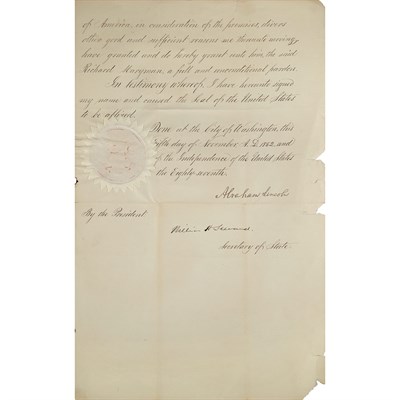 of America, in consideration of the premises, divers
other good and sufficient reasons me thereunto moving,
have granted and do hereby grant unto him, the said
Richard Merryman, a full and unconditional pardon.
In testimony whereof, I have hereunto signed
my name and caused the Seal of the United States
to be affixed.
Done at the City of Washington, this
fifth day of November A.D. 1862, and
of the Independence of the United States
the Eighty seventh.
Abraham Lincoln
By the President
William H Seward
Secretary of State.